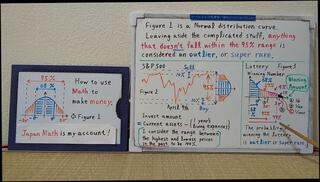 95%
68%
How to use
Math to
make money.
Figure 1
Japan Math is my account!
Figure 1 is a Normal distribution curve.
Leaving aside the complicated stuff, anything
that doesn't fall within the 95% range is
considered an outlier, or super rare.
S&P500
Sell
Figure 2
Buy
April 7th
Invest amount
= Current assets - (1 year's living expenses)
I consider the range between
the highest and lowest prices
in the past to be 100%
Lottery
Figure 3
Winning Number
68%
Winning
Amount
The probability
winning the lottery
is outlier = super rare.